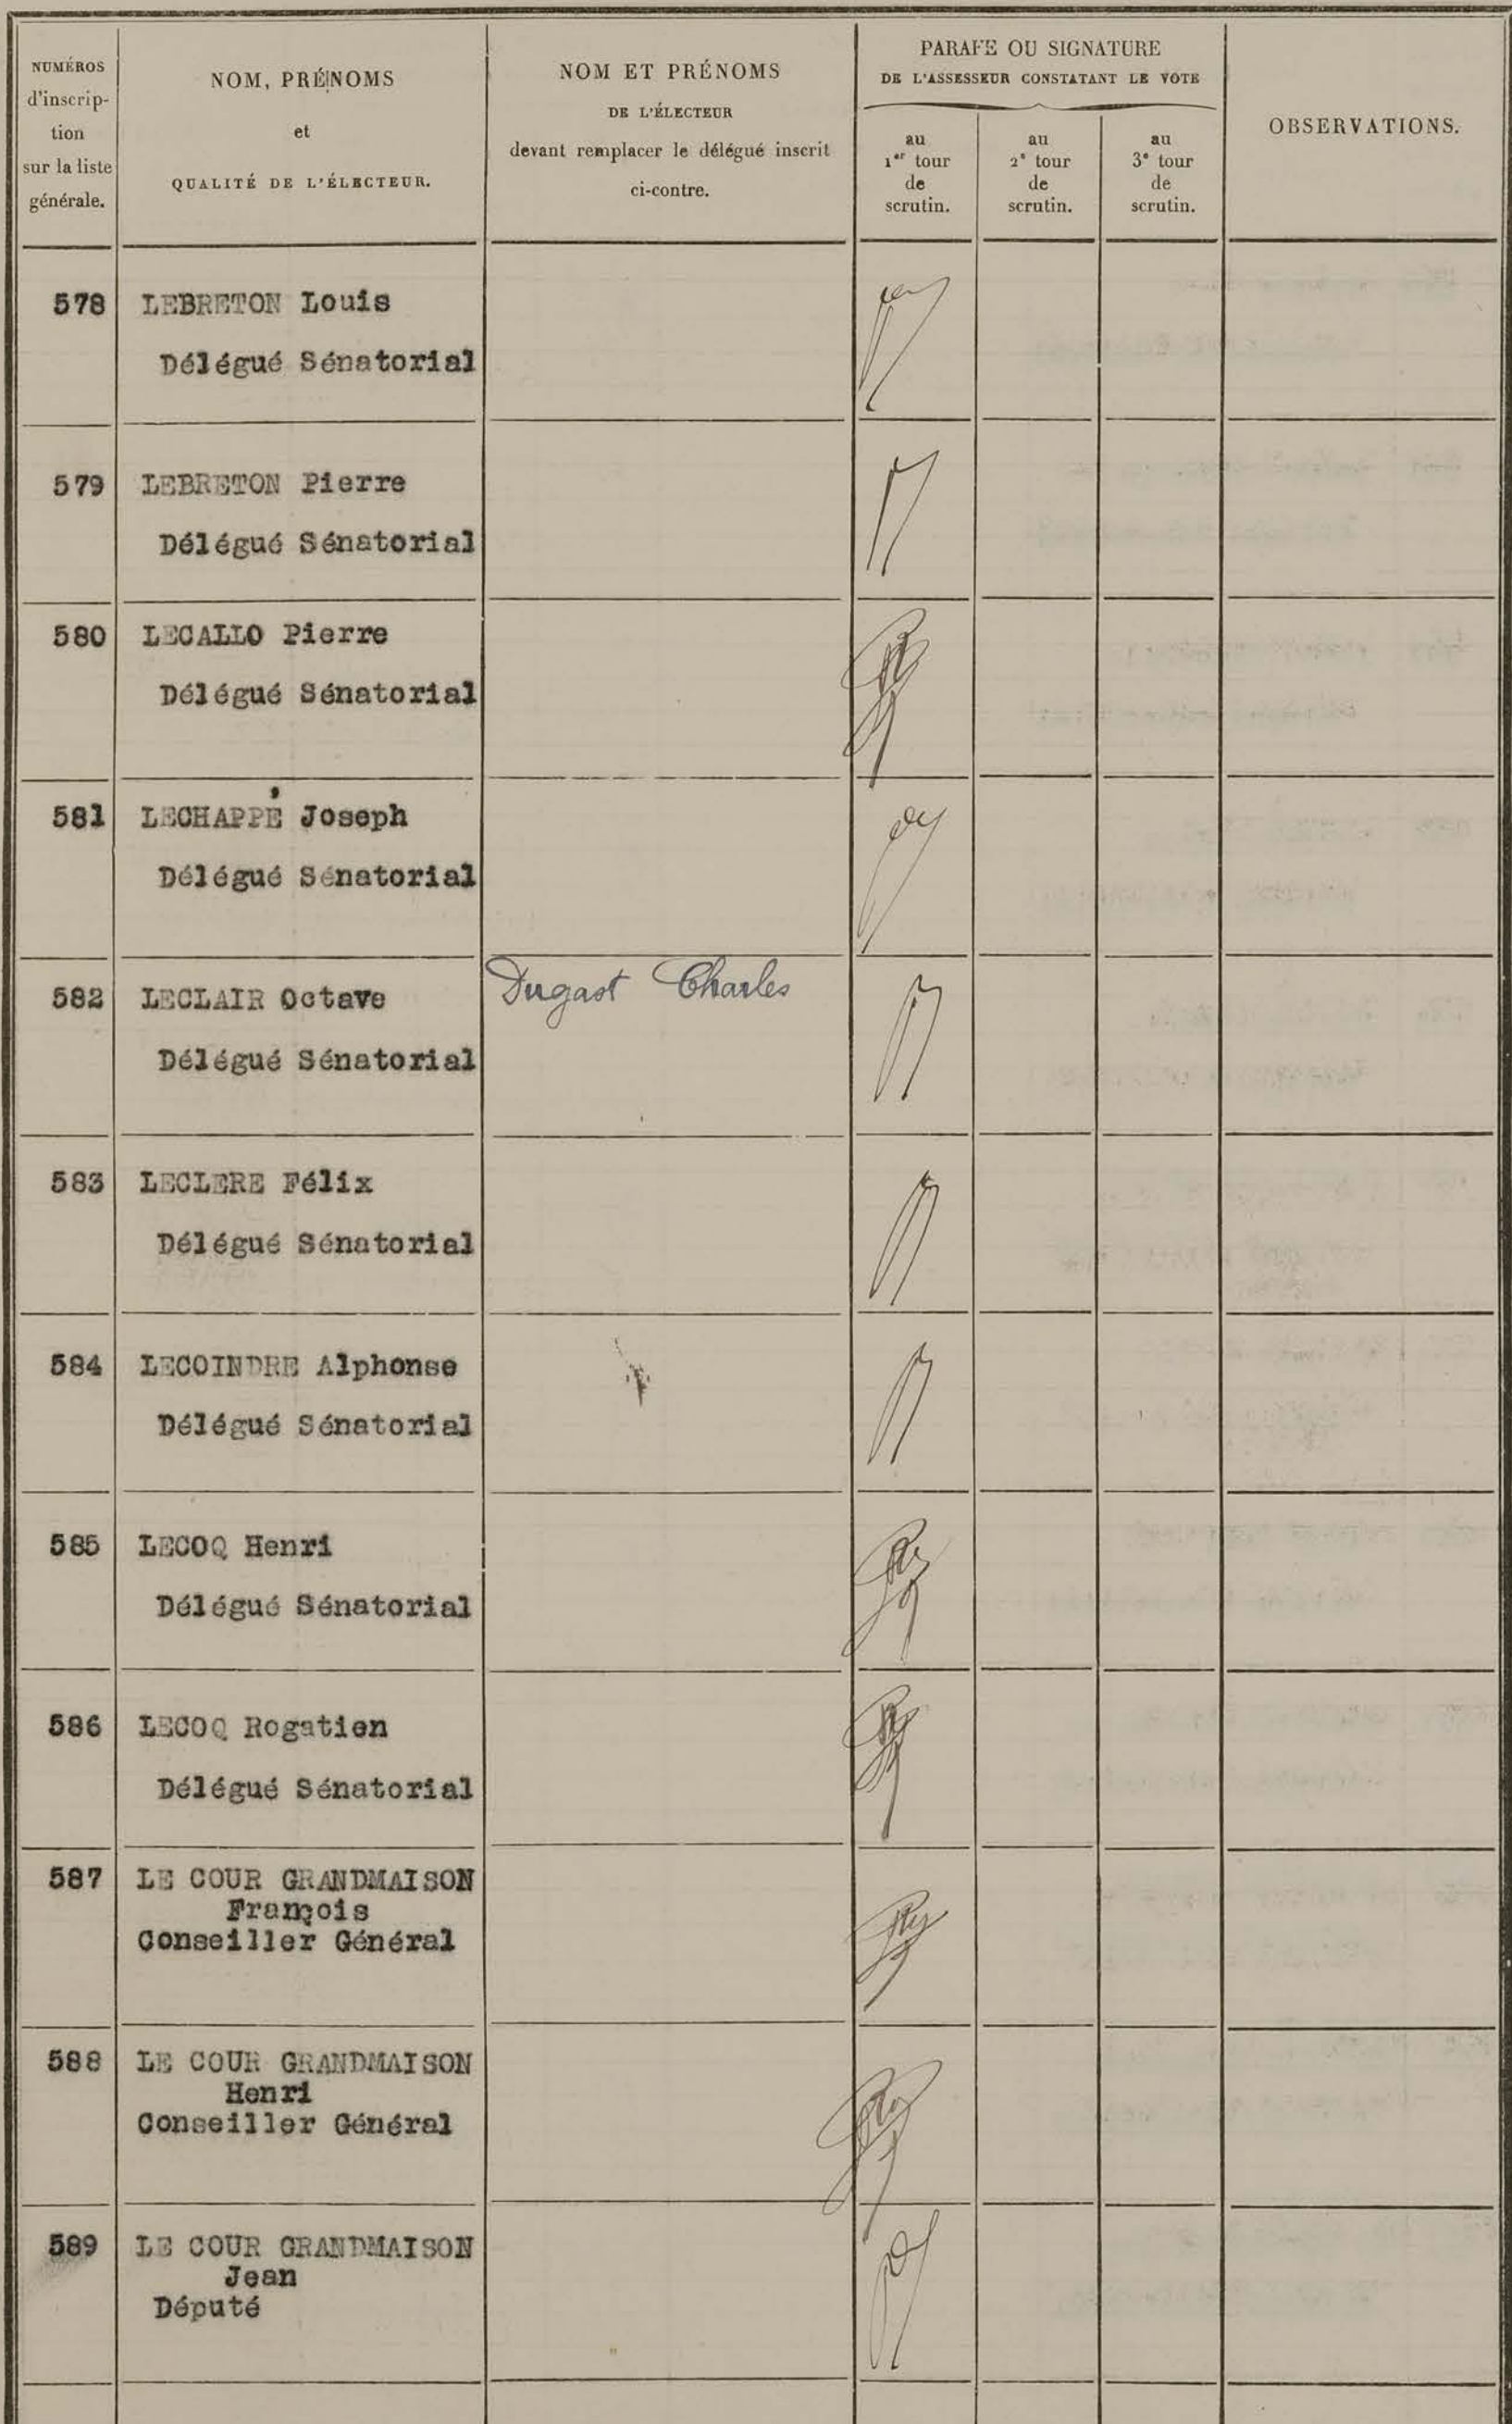 NUMÉROS
d'inscrip-
tion
sur la liste
générale.
NOM, PRÉNOMS
et
QUALITÉ DE L'ÉLECTEUR.
NOM ET PRÉNOMS
DE L'ÉLECTEUR
devant remplacer le délégué inscrit
ci-contre.
PARAFE OU SIGNATURE
DE L'ASSESSEUR CONSTATANT LE VOTE
au
1er tour
de
scrutin.
au
2e tour
de
scrutin.
au
3e tour
de
scrutin.
OBSERVATIONS.
578 LEBRETON Louis
Délégué Sénatorial
579 LEBRETON Pierre
Délégué Sénatorial
580 LECALLO Pierre
Délégué Sénatorial
581 LECHAPPÉ Joseph
Délégué Sénatorial
582 LECLAIR Octave Dugast Charles
Délégué Sénatorial
583 LECLERE Félix
Délégué Sénatorial
584 LECOINDRE Alphonse
Délégué Sénatorial
585 LECOQ Henri
Délégué Sénatorial
586 LECOQ Rogatien
Délégué Sénatorial
587 LE COUR GRANDMAISON
François
Conseiller Général
588 LE COUR GRANDMAISON
Henri
Conseiller Général
589 LE COUR GRANDMAISON
Jean
Député